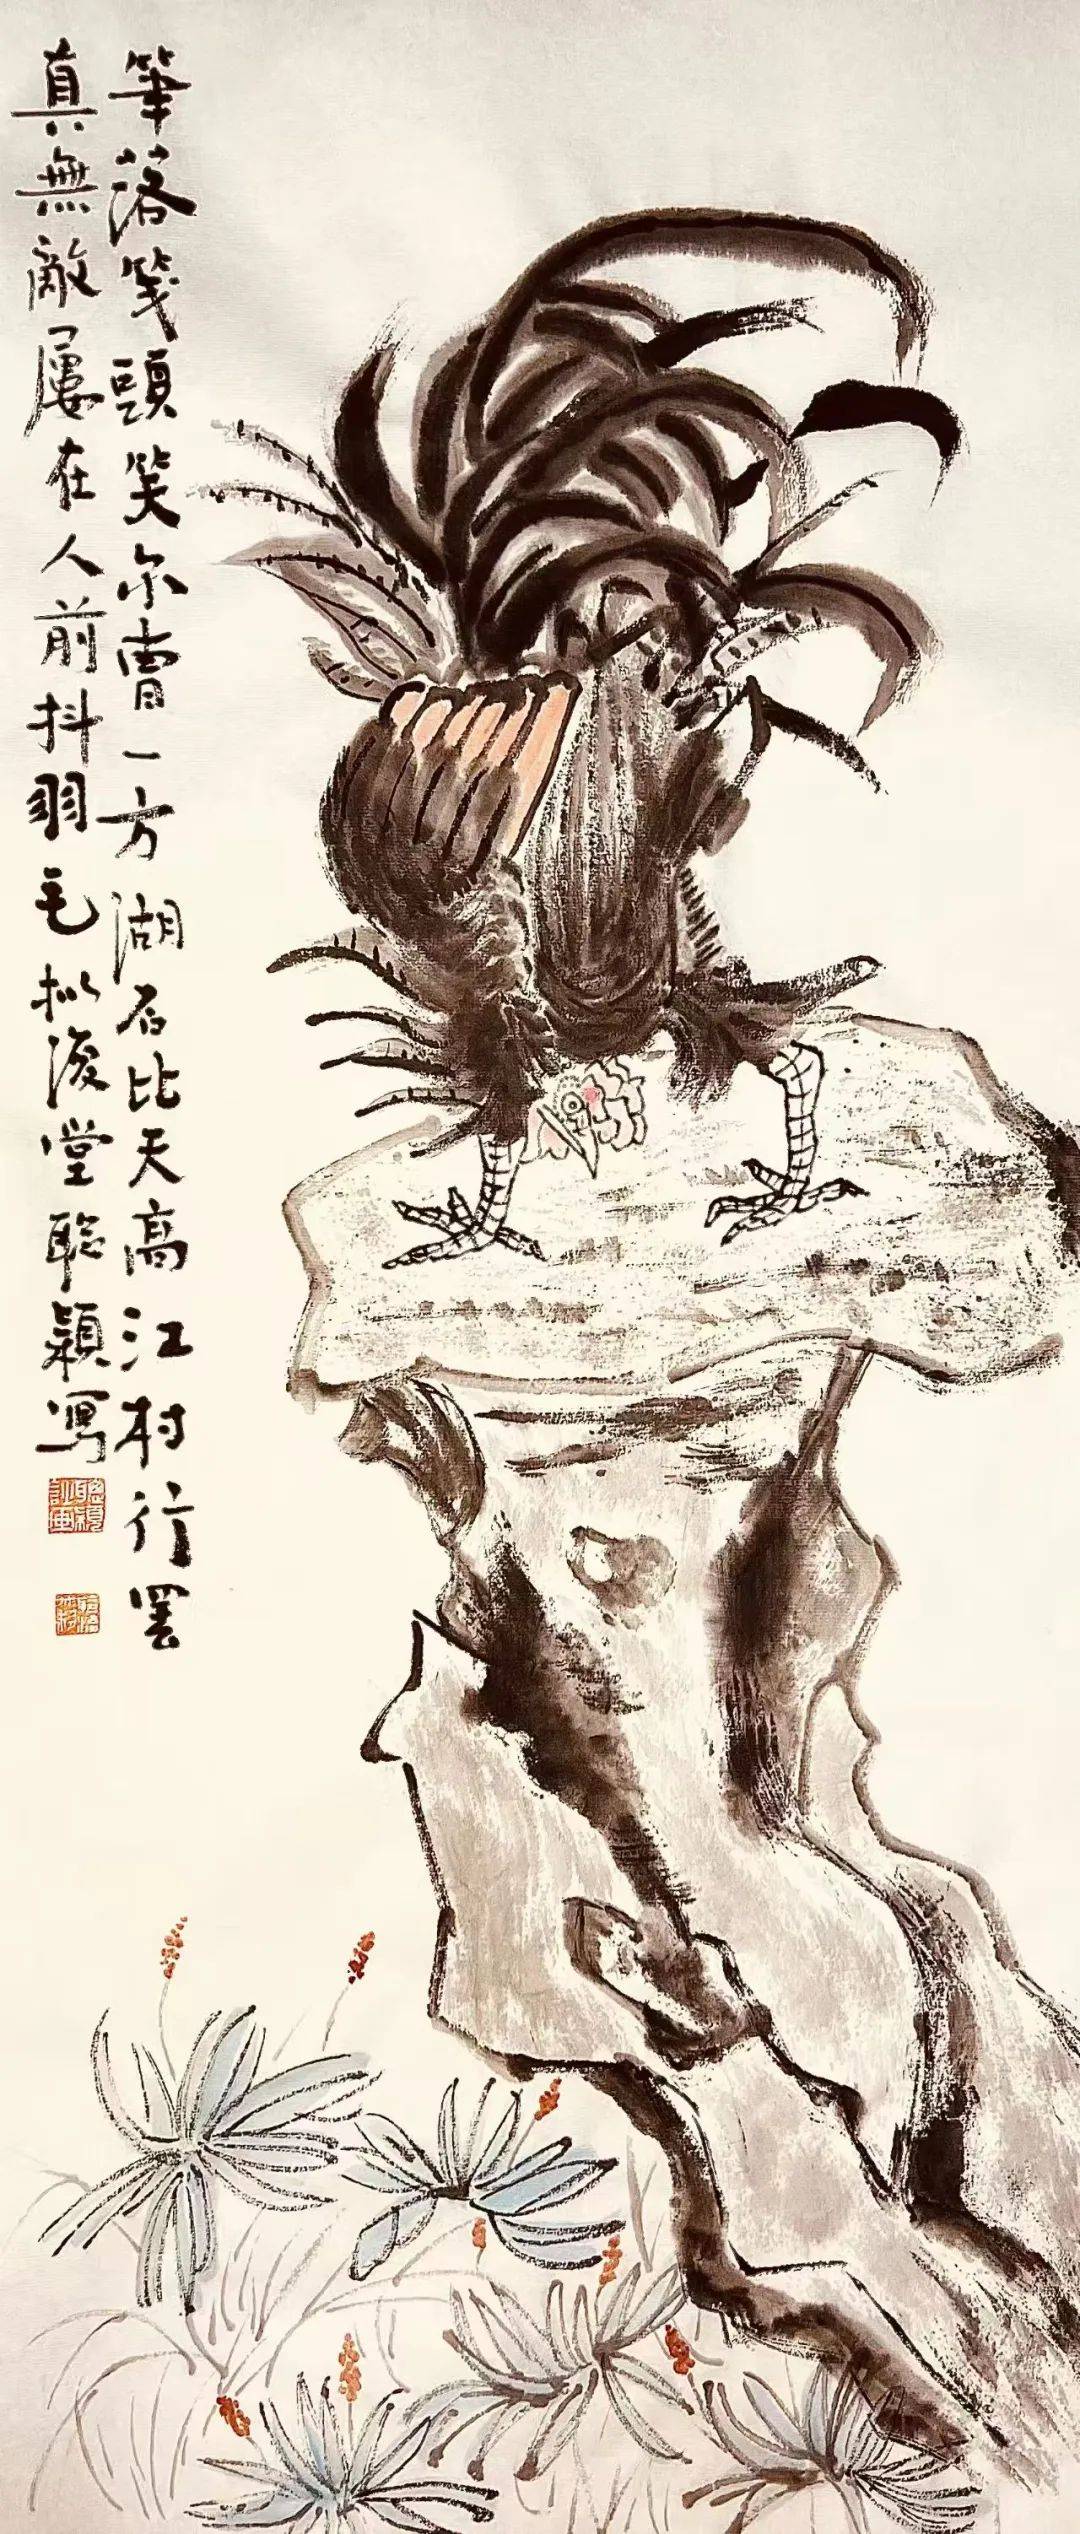 筆落箋頭笑尔曹一方湖石比天高江村行罢
真無敵屢在人前抖羽毛拟浚堂聪颖写